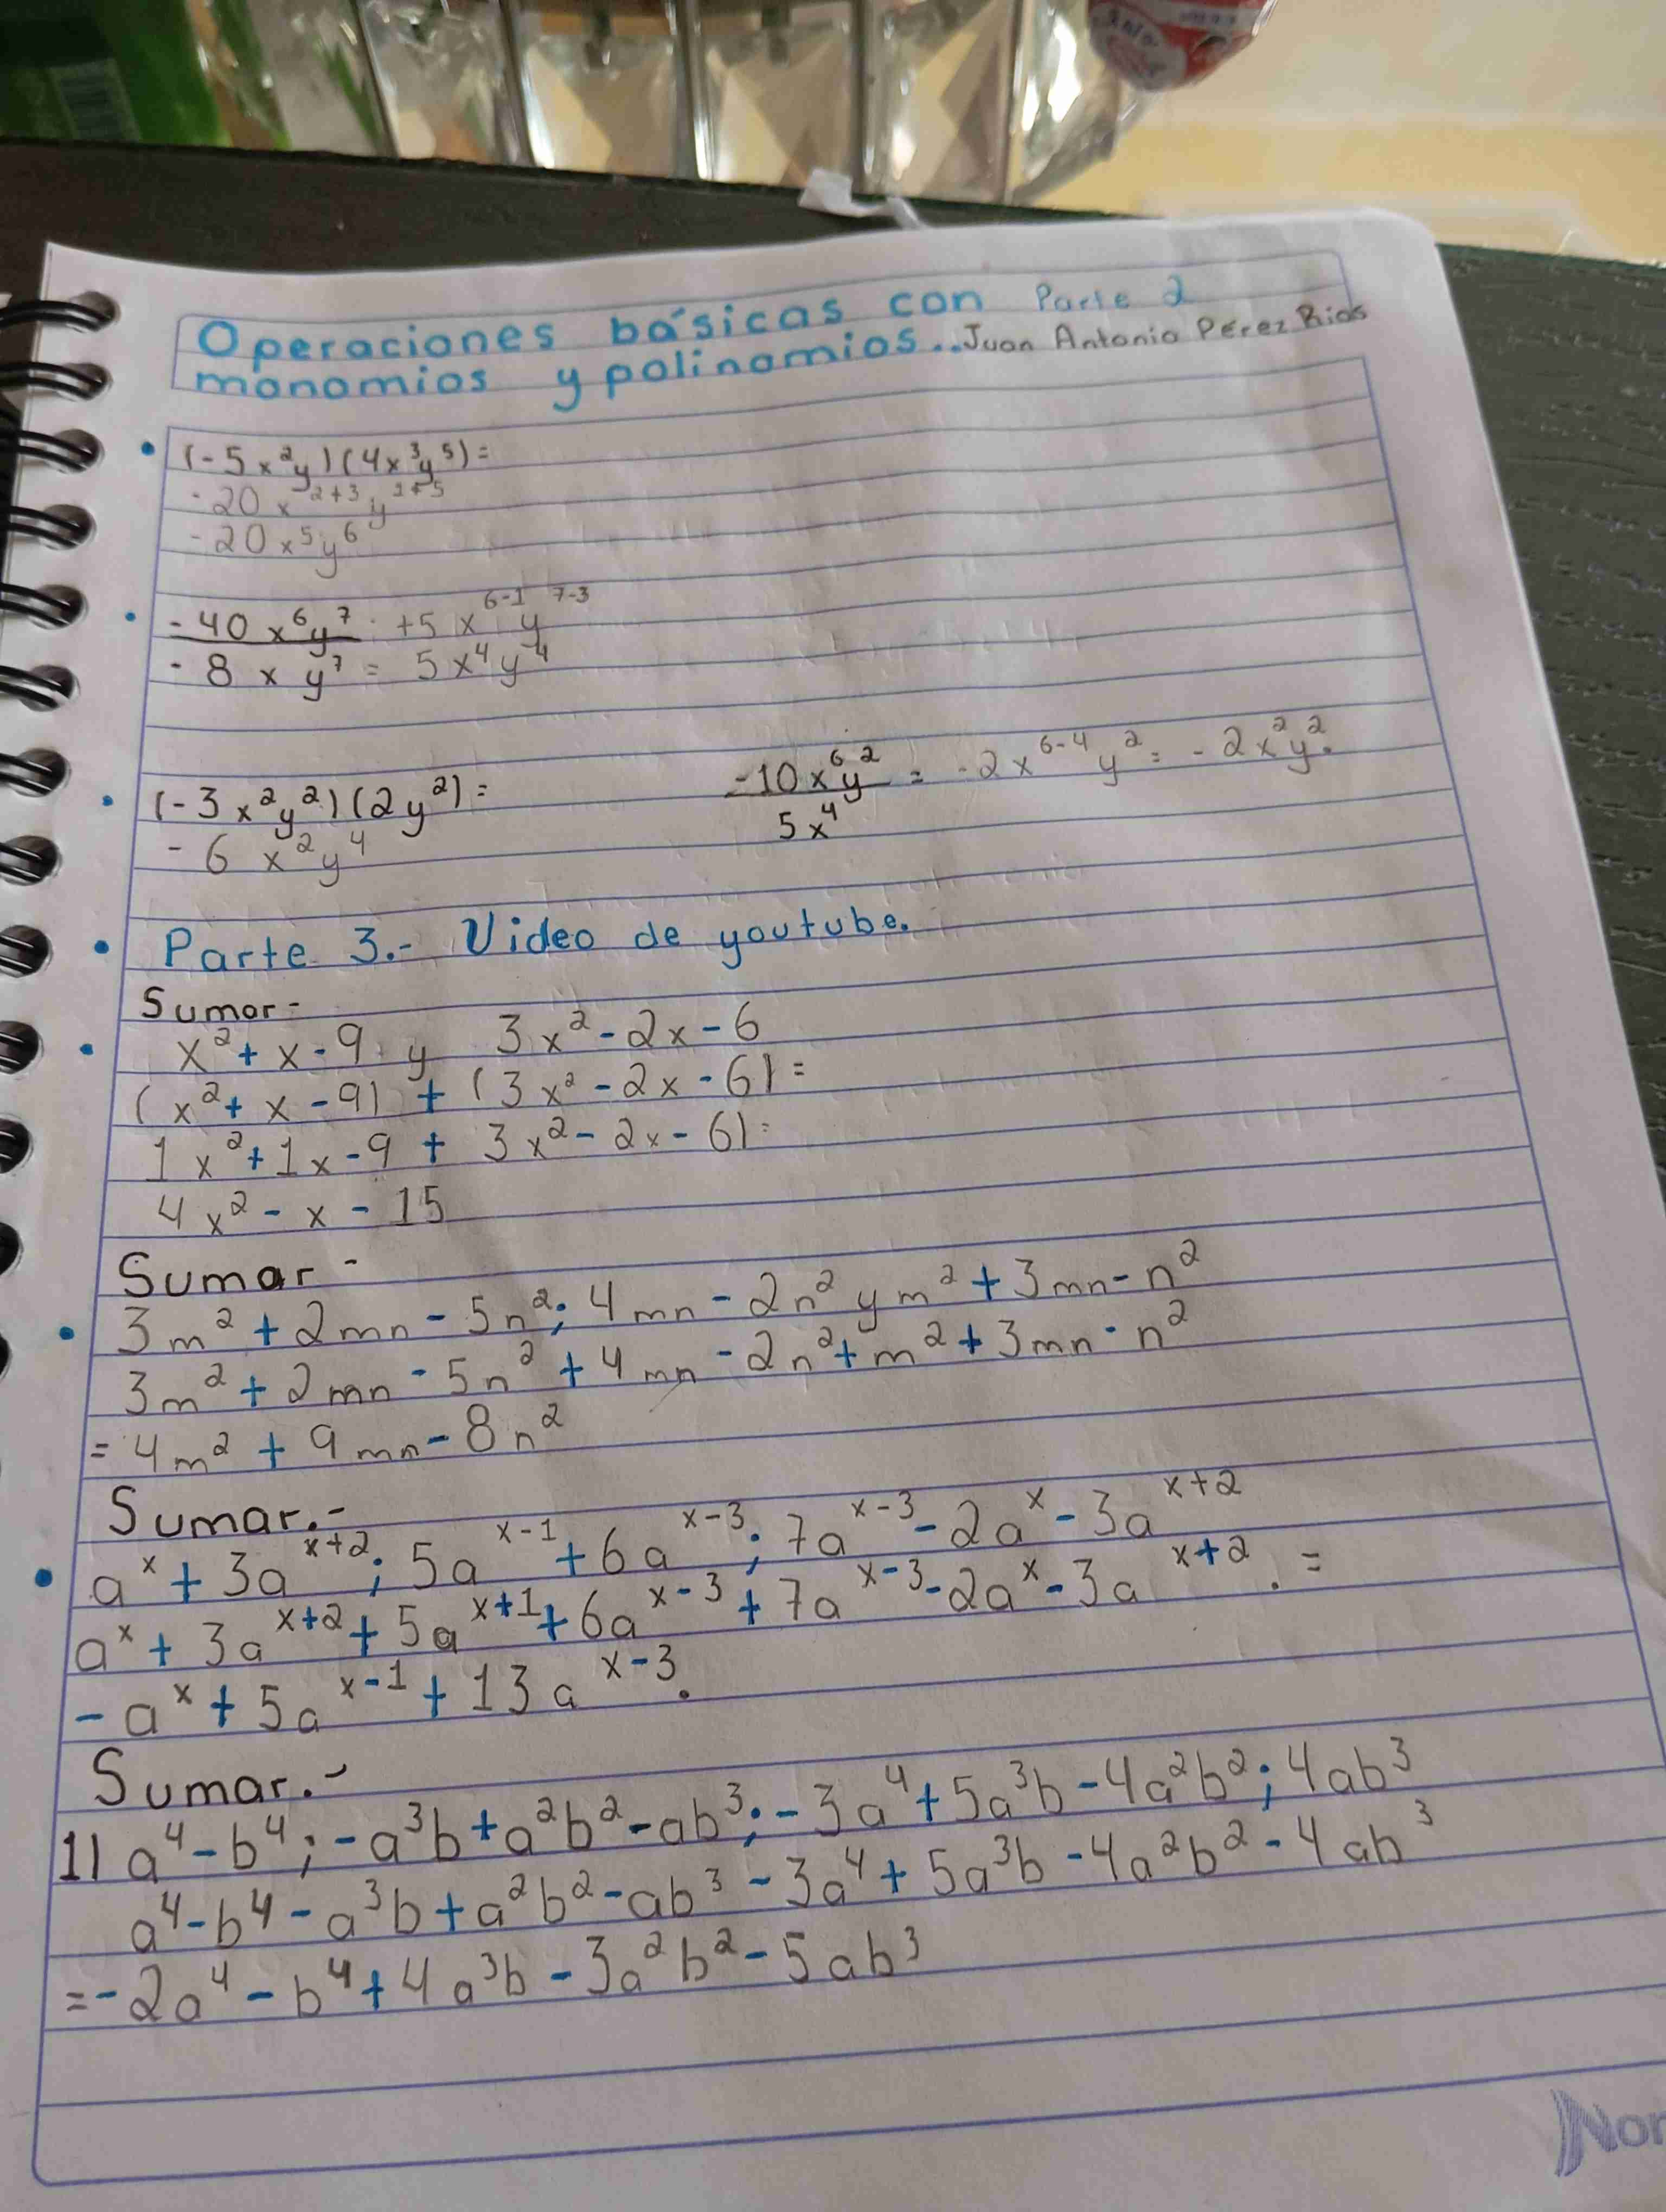 Operaciones básicas con Parte 2
monomios y polinomios.. Juan Antonio Pérez Rios
(-5x²y)(4x³y⁵)=
-20x²⁺³y¹⁺⁵
-20x⁵y⁶
-40x⁶y⁷ : +5x⁶⁻¹y⁷⁻³
-8xy⁷ = 5x⁴y⁴
(-3x²y²)(2y²)=
-6x²y⁴
-10x⁶y² = -2x⁶⁻⁴y² = -2x²y².
5x⁴
Parte 3.- Video de youtube.
Sumar-
x²+x-9 y 3x²-2x-6
(x²+x-9)+(3x²-2x-6)=
1x²+1x-9+3x²-2x-6)=
4x²-x-15
Sumar-
3m²+2mn-5n²; 4mn-2n² y m²+3mn-n²
3m²+2mn-5n²+4mn-2n²+m²+3mn-n²
=4m²+9mn-8n²
Sumar.-
aˣ+3aˣ⁺²; 5aˣ⁻¹+6aˣ⁻³; 7aˣ⁻³-2aˣ-3aˣ⁺²
aˣ+3aˣ⁺²+5aˣ⁺¹+6aˣ⁻³+7aˣ⁻³-2aˣ-3aˣ⁺². =
-aˣ+5aˣ⁻¹+13aˣ⁻³.
Sumar.-
1) a⁴-b⁴; -a³b+a²b²-ab³; -3a⁴+5a³b-4a²b²; 4ab³
a⁴-b⁴-a³b+a²b²-ab³-3a⁴+5a³b-4a²b²-4ab³
=-2a⁴-b⁴+4a³b-3a²b²-5ab³